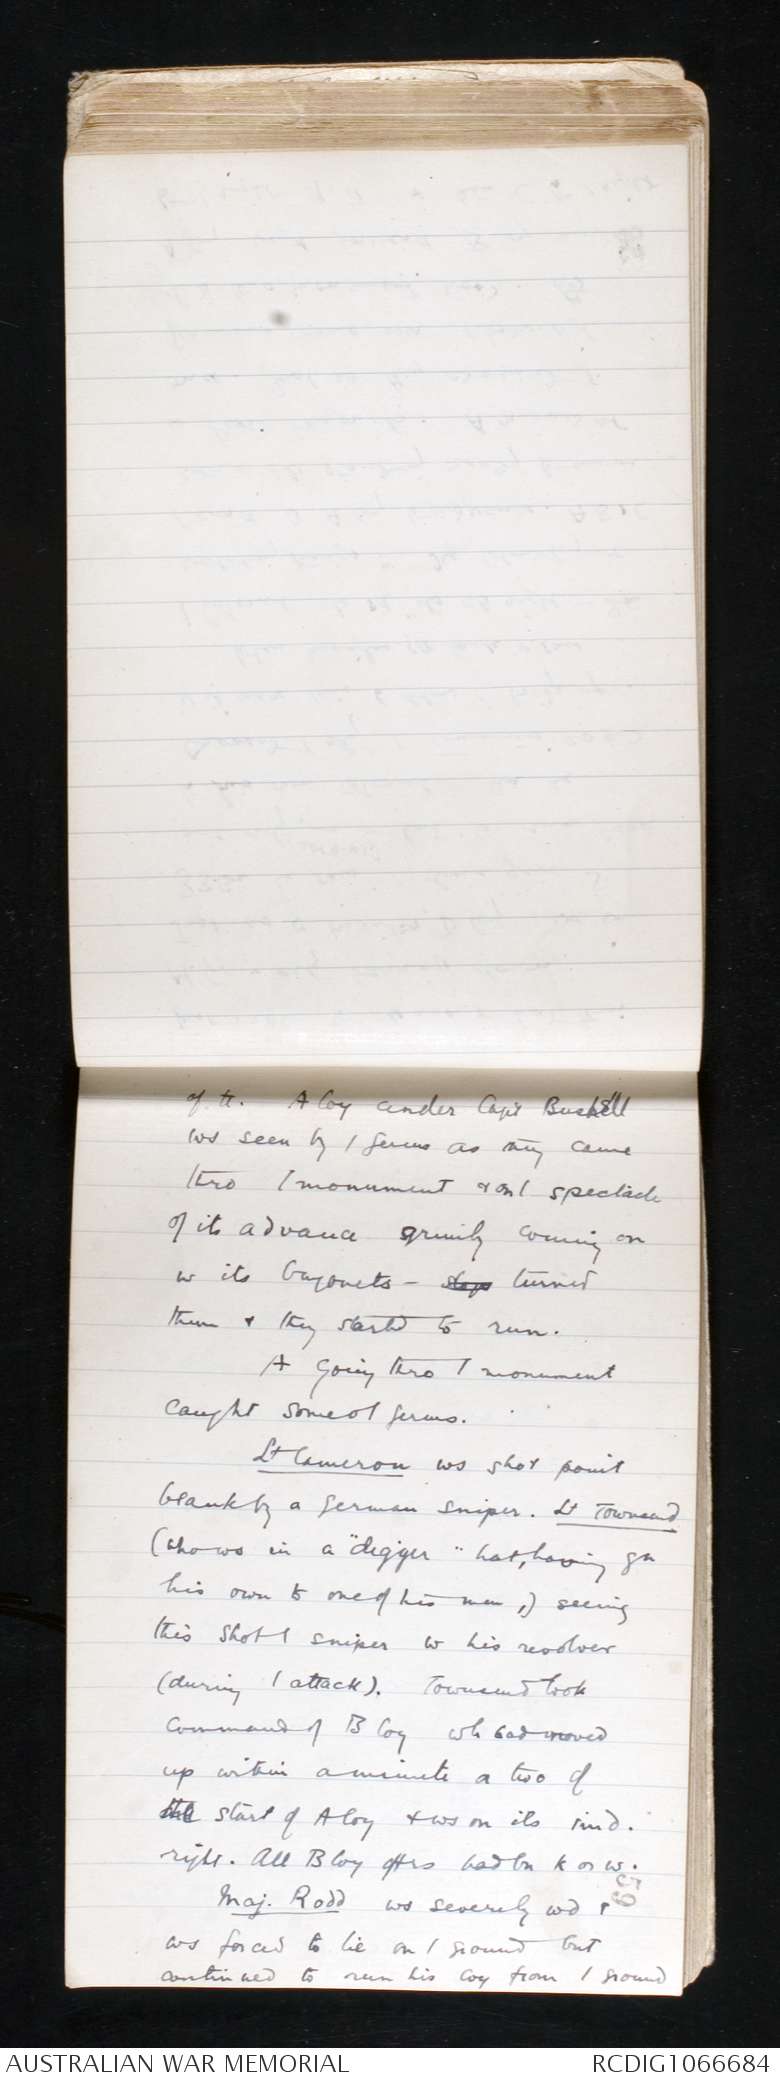 of tt. A Coy under Capt Bushell
ws seen by / Germs as they came
thro / monument & on / spectacle
of its advance grimly coming on
w its bayonets – turned
them & they started to run.
A going thro / monument
caught some of / Germs.
Lt Cameron ws shot point
blank by a German sniper. Lt Townsend
(who ws in a "digger" hat, having gn
his own to one of his men,) seeing
this shot / sniper w his revolver
(during / attack). Townsend took
command of B Coy wh had moved
up within a minute or two of
the start of A Coy & ws on its
right. All B Coy offrs had bn k or w.
Maj. Rodd ws severely wd &
ws forced to lie on / ground but
continued to run his Coy from / ground
59
AUSTRALIAN WAR MEMORIAL
RCDIG1066684